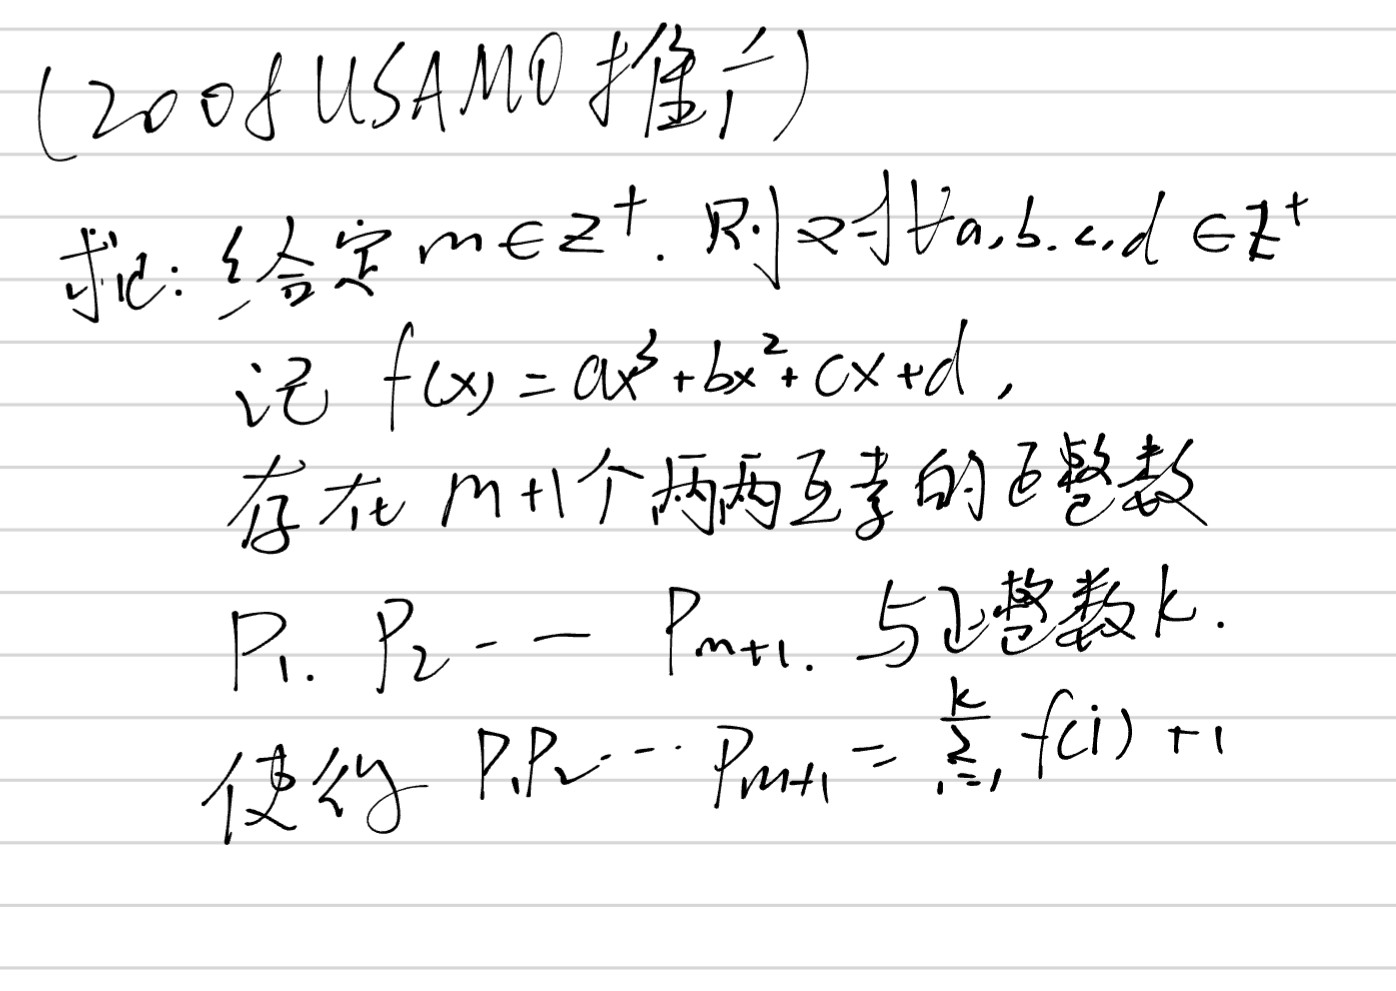 (2008 USAMO 推广)
求证: 给定 m∈Z⁺. 则对∀a,b.c,d ∈Z⁺
记 f(x)=ax³+bx²+cx+d,
存在 m+1个两两互素的正整数
P₁. P₂ -- — Pₘ₊₁. 与正整数k.
使得 P₁P₂…Pₘ₊₁ = ∑ᵢ₌₁ᵏ f(i) +1